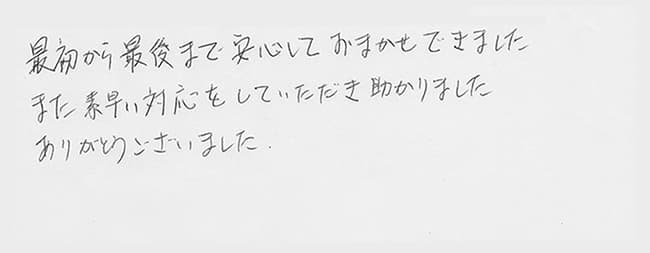 最初から最後まで安心しておまかせできました
また素早い対応をしていただき助かりました
ありがとうございました.